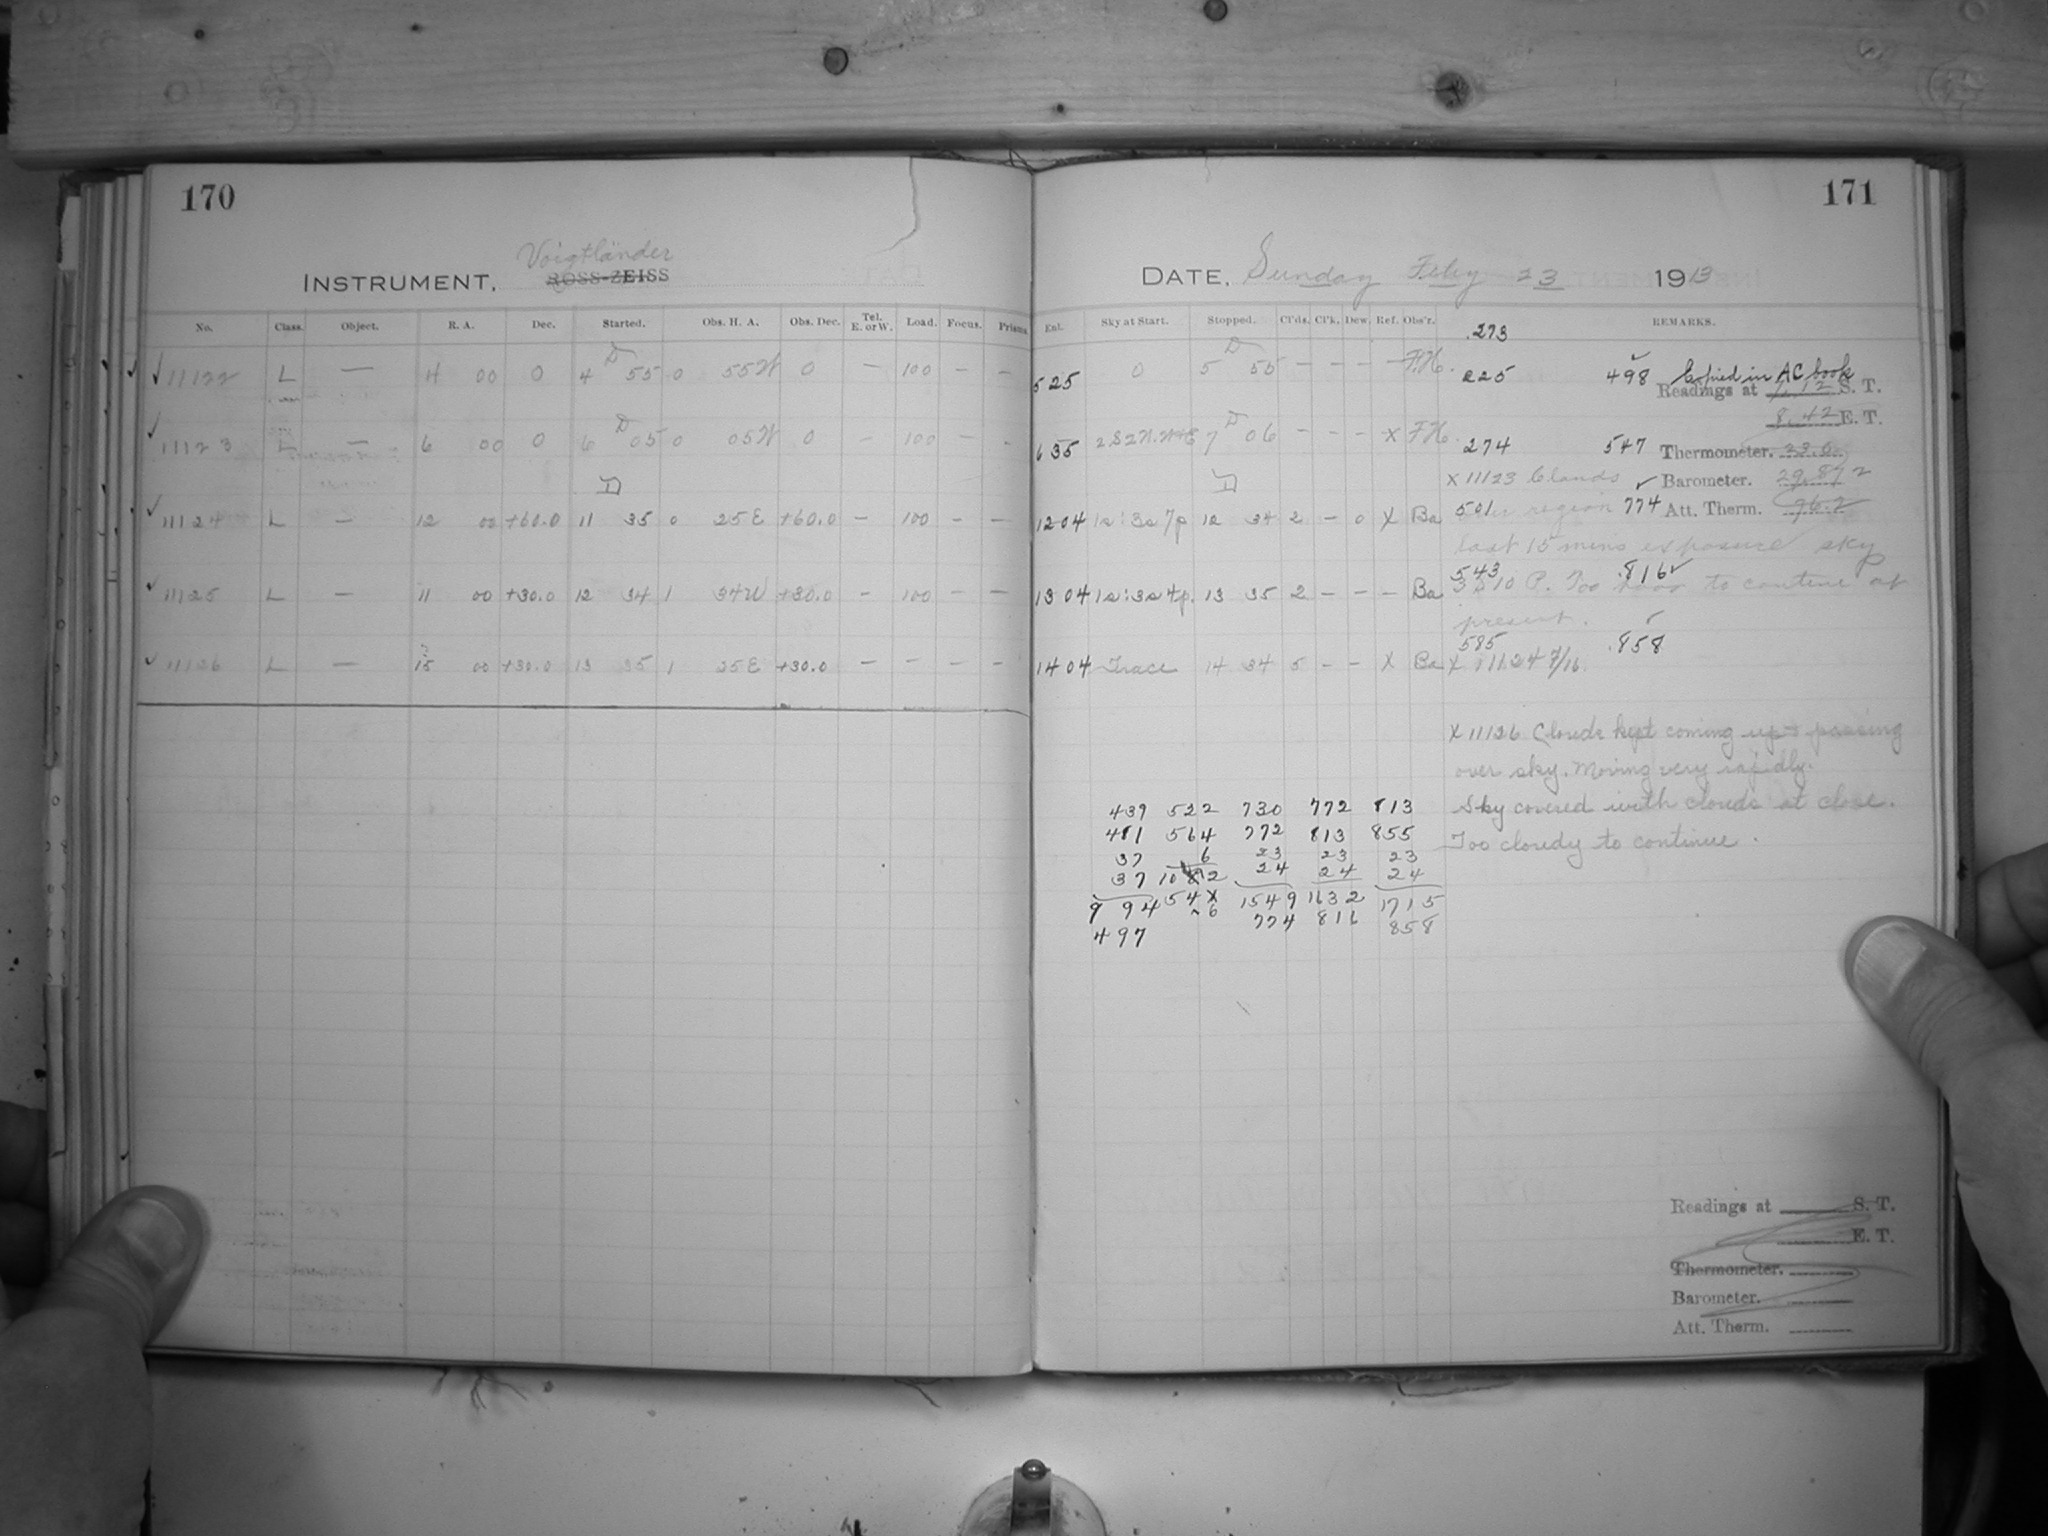 170
Voigtländer
INSTRUMENT, ROSS-ZEISS
No. Class. Object. R. A. Dec. Started. Obs. H. A. Obs. Dec. Tel. E. or W. Load. Focus. Prisms
11122 L — 4 00 0 4 D 55 0 55W 0 — 100 — —
11123 L — 6 00 0 6 D 05 0 05W 0 — 100 — —
D
11124 L — 12 00 +60.0 11 35 0 25E +60.0 — 100 — —
11125 L — 11 00 +30.0 12 34 1 34W +30.0 — 100 — —
11126 L — 15 00 +30.0 13 35 1 25E +30.0 — — — —
171
DATE, Sunday Feby 23 1913
Ent. Sky at Start. Stopped. Cl'ds. Cl'k. Dew. Ref. Obs'r. REMARKS.
.273
5 25 0 5 D 55 — — — — F.H. 225 498 Copied in AC book
Readings at S. T.
8.42 E. T.
6 35 7 D 06 — — — X F.H. 274 547 Thermometer.
D
X 11123 Clouds Barometer. 29.872
12 04 12 34 2 — 0 X Ba 501 region 774 Att. Therm. 76.2
last 15 mins exposure sky
543 .816
13 04 13 35 2 — — — Ba 3 S 10 P. Too to continue at
present.
585 .858
14 04 Trace 14 34 5 — — X Ba X 11124 7/16
X 11126 Clouds kept coming up & passing
over sky. Moving very rapidly.
Sky covered with clouds at close.
Too cloudy to continue.
439 522 730 772 813
481 564 772 813 855
37 6 23 23 23
37 24 24 24
994 1549 1632 1715
497 774 816 858
Readings at S. T.
E. T.
Thermometer.
Barometer.
Att. Therm.